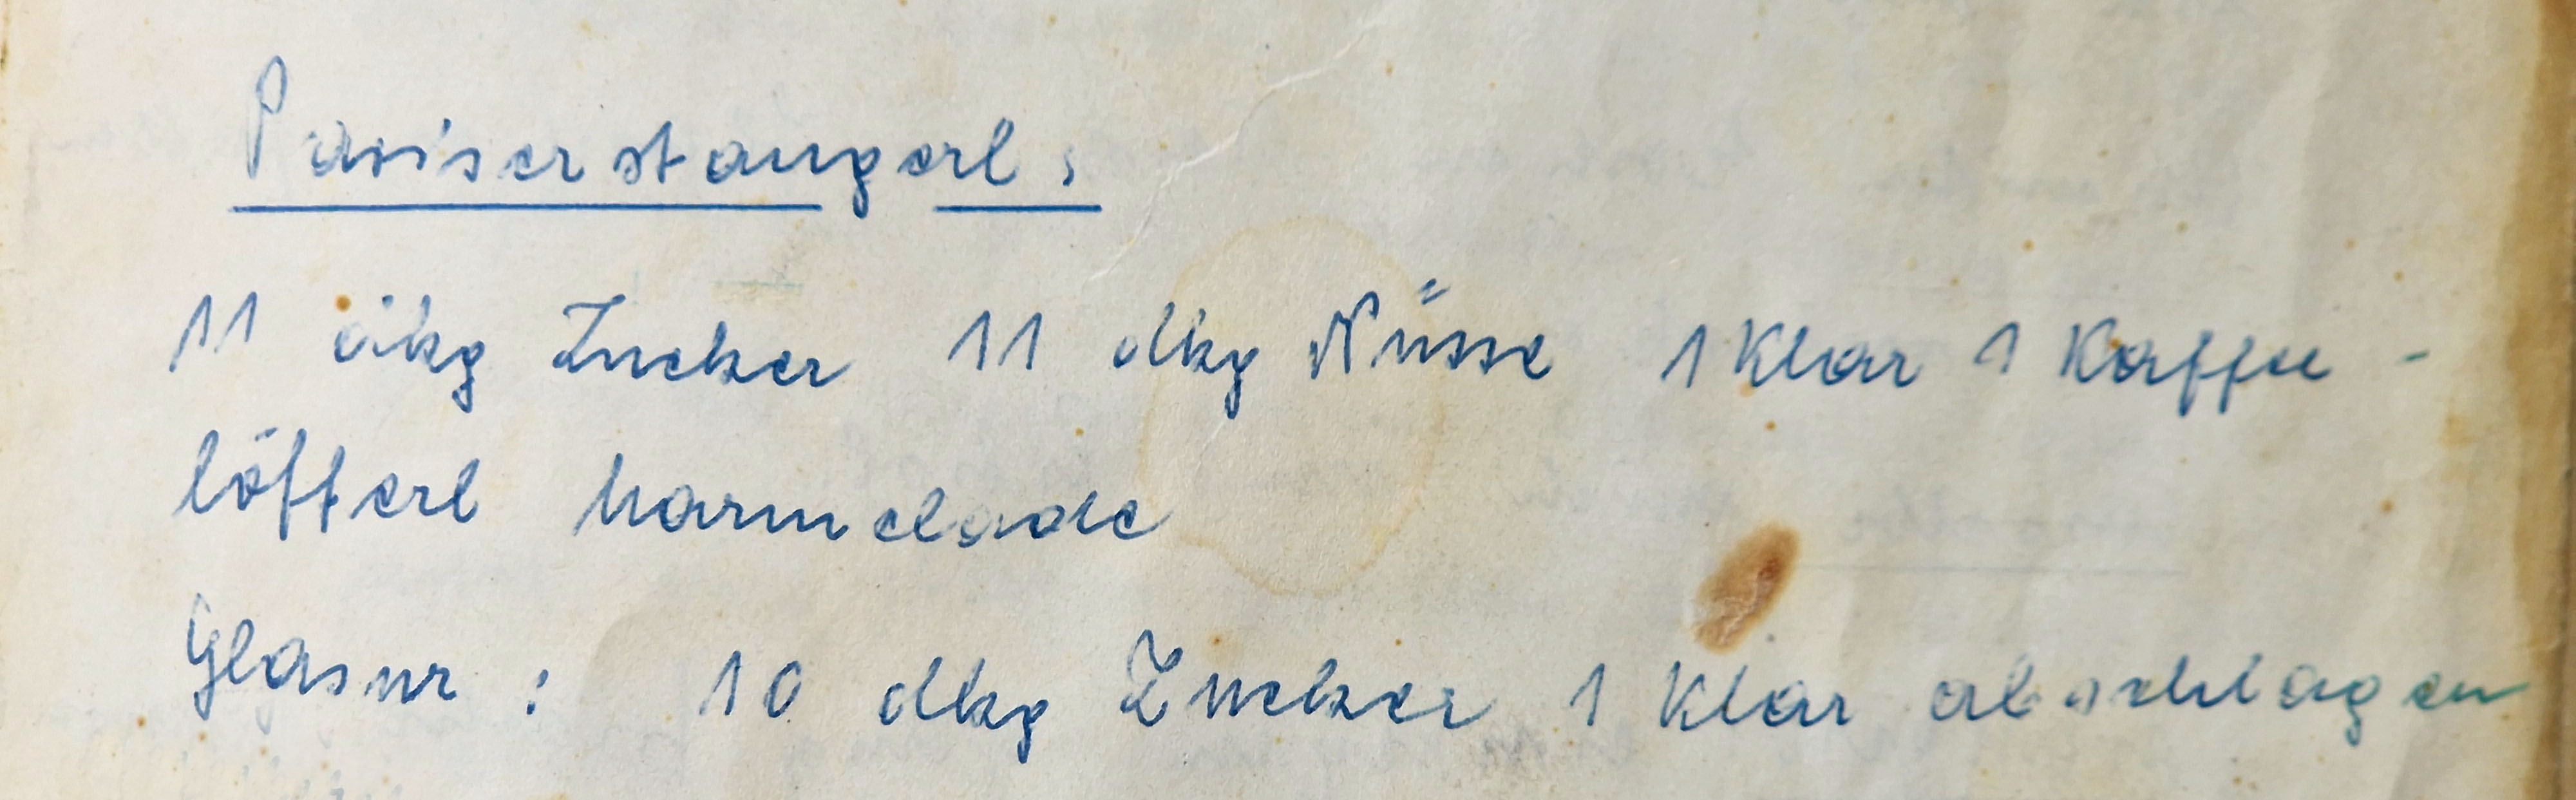 Pariserstangerl:
11 dkg Zucker 11 dkg Nüsse 1 Klar 1 Kaffee-
löfferl Marmelade
Glasur: 10 dkg Zucker 1 Klar abschlagen